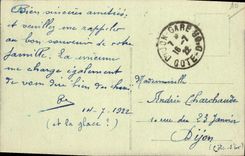 Bien sincères amitiés,
et veuillez me rappeler
au bon souvenir de votre
famille. La mienne
me charge également
de vous dire bien des choses
14-7-1922
(et la glace!)
DIJON GARE
16-7
22
COTE-D'OR
Mademoiselle
Andrée Charchaude
10 rue du 23 Janvier
Dijon